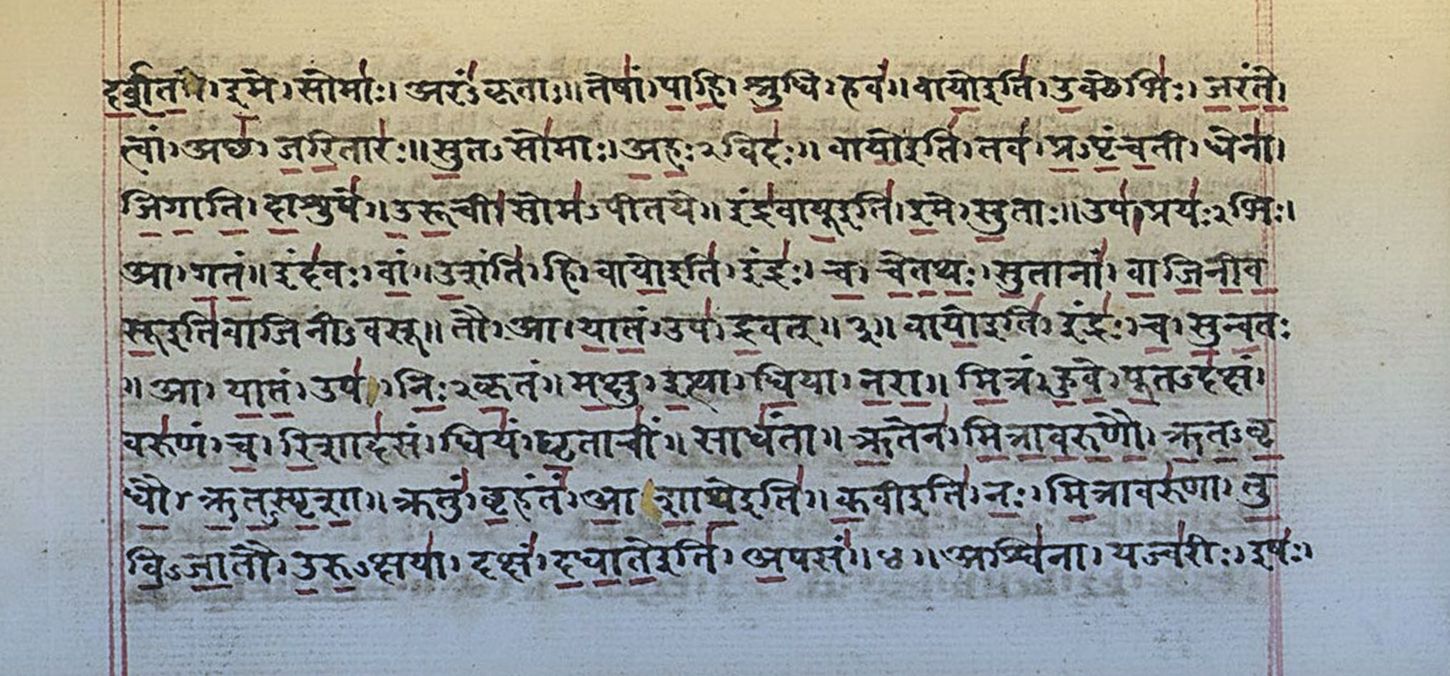 दर्शत। इमे। सोमाः। अरंऽकृताः॥ तेषां। पाहि। श्रुधि। हवं॥ वायो इति। उक्थेभिः। जरंते।
त्वां। अच्छ। जरितारः॥ सुतऽसोमाः। अहःऽविदः॥ वायो इति। तव। प्रऽपृंचती। धेना।
जिगाति। दाशुषे॥ उरूची। सोमऽपीतये॥ इंद्रवायू इति। इमे। सुताः॥ उप। प्रयःऽभिः।
आ। गतं॥ इंदवः। वां। उशंति। हि॥ वायो इति। इंद्रः। च। चेतथः। सुतानां। वाजिनीव
सू इति वाजिनीऽवसू॥ तौ। आ। यातं। उप। द्रवत्॥ ३॥ वायो इति। इंद्रः। च। सुन्वतः
। आ। यातं। उप। निःऽकृतं॥ मक्षु। इत्था। धिया। नरा॥ मित्रं। हुवे। पूतऽदक्षं।
वरुणं। च। रिशादसं। धियं। घृताचीं। साधंता॥ ऋतेन। मित्रावरुणौ। ऋतऽवृ
धौ। ऋतऽस्पृशा॥ ऋतुं। बृहंतं। आशाथे इति॥ कवी इति। नः। मित्रावरुणा। तु
विऽजातौ। उरुऽक्षया। दक्षं। दधाते इति। अपसं॥ ४॥ अश्विना। यज्वरीः। इषः।